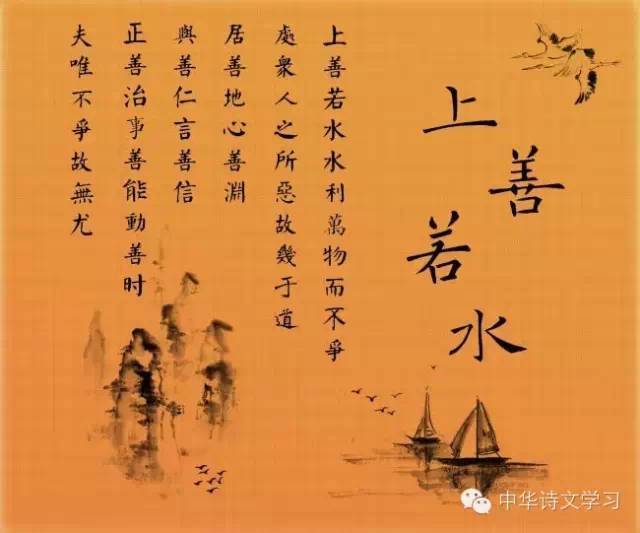 上善若水
上善若水水利萬物而不爭
處衆人之所惡故幾于道
居善地心善淵
與善仁言善信
正善治事善能動善时
夫唯不爭故無尤
中华诗文学习